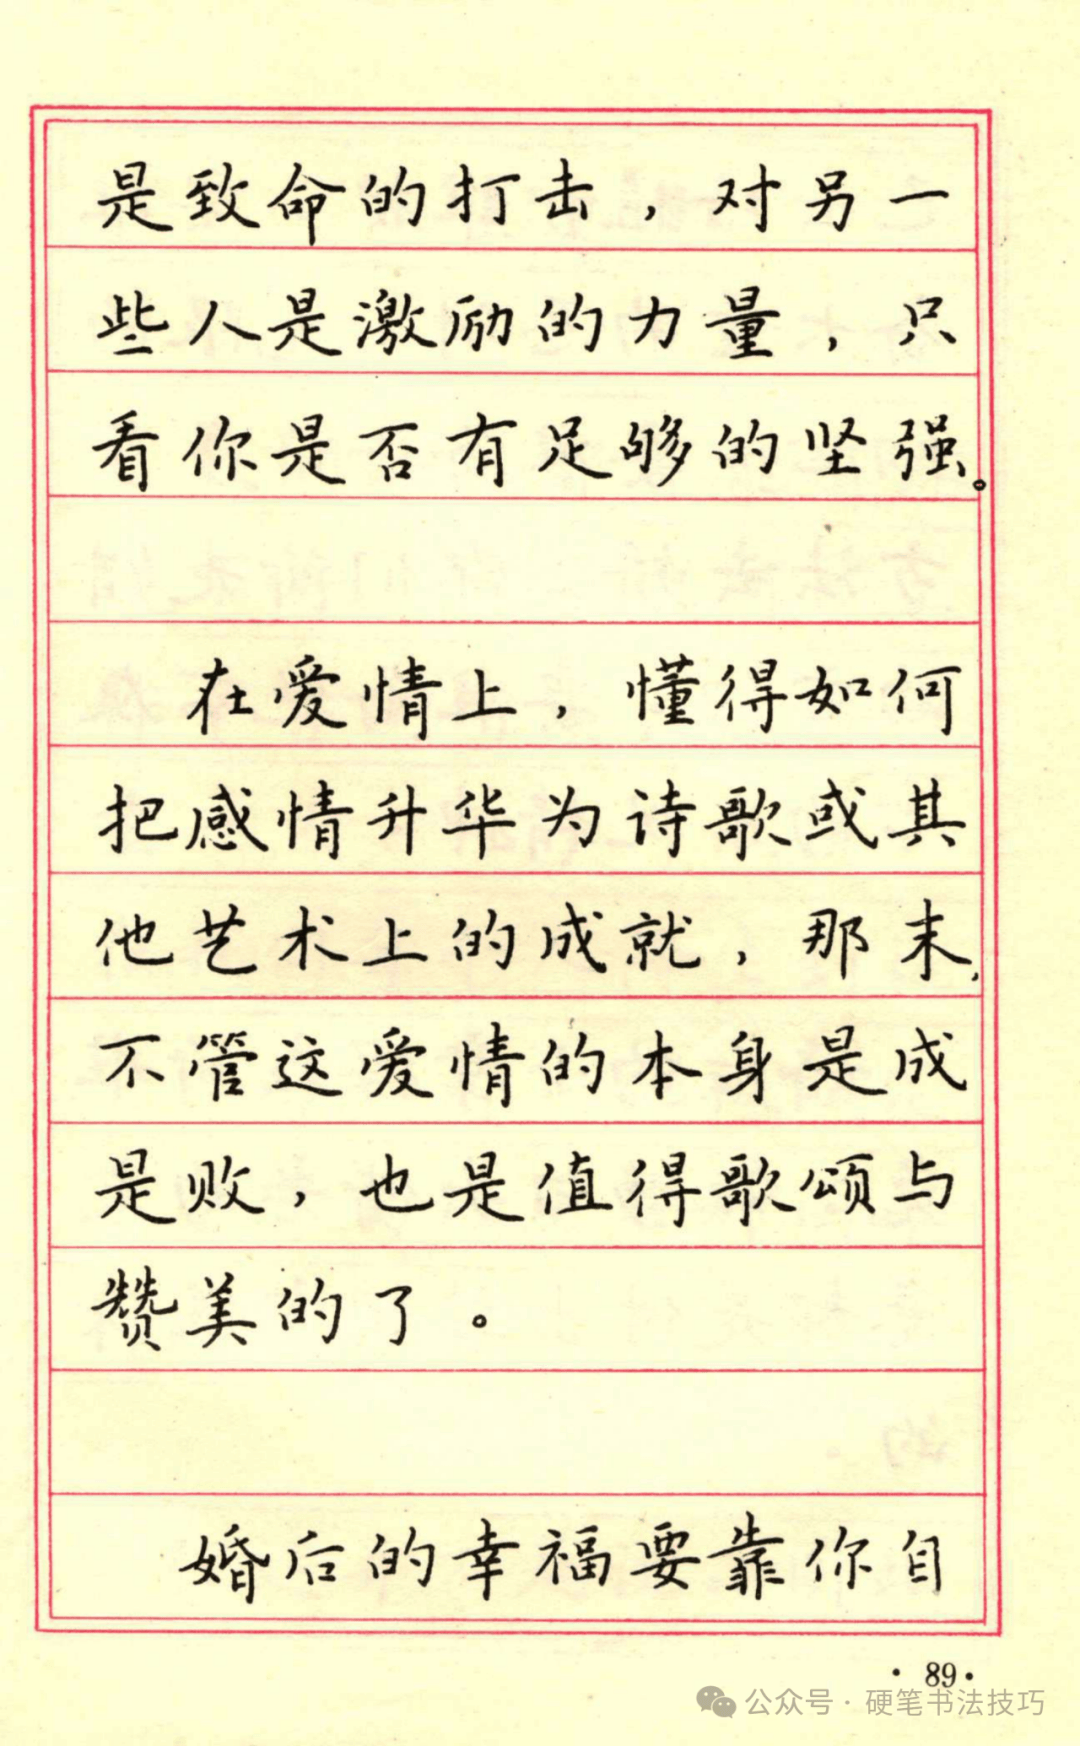 是致命的打击，对另一
些人是激励的力量，只
看你是否有足够的坚强。
在爱情上，懂得如何
把感情升华为诗歌或其
他艺术上的成就，那末，
不管这爱情的本身是成
是败，也是值得歌颂与
赞美的了。
婚后的幸福要靠你自
·89·
公众号·硬笔书法技巧